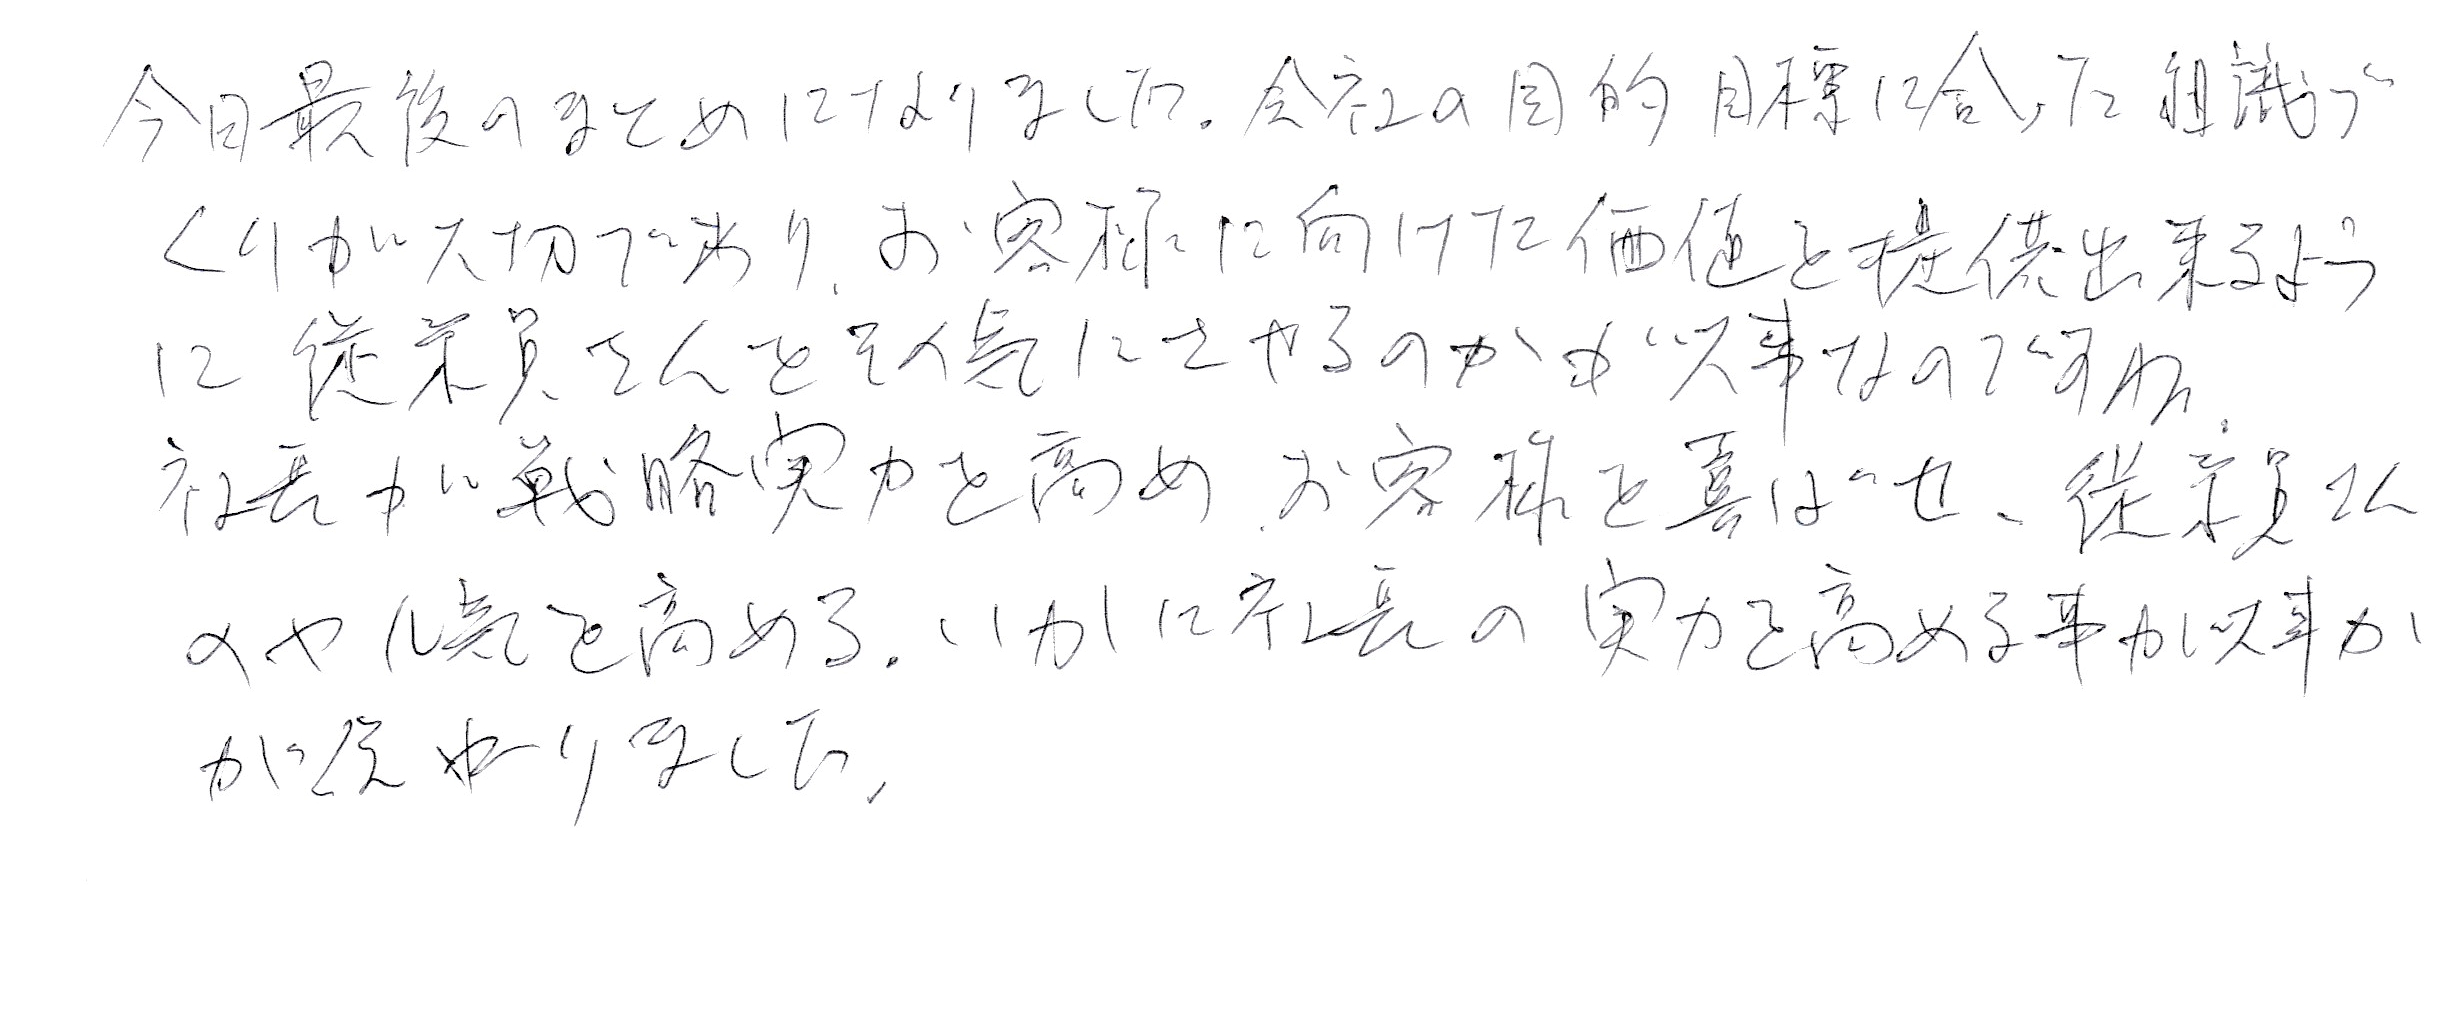 今日最後のまとめになりました。会社の目的目標に合った組織づ
くりが大切であり、お客様に向けた価値を提供出来るよう
に従業員さんをその気にさせるのかが大事なのですね。
社長が戦略実力を高め、お客様を喜ばせ、従業員さん
のやる気を高める。いかに社長の実力を高める事が大事か
が伝わりました。